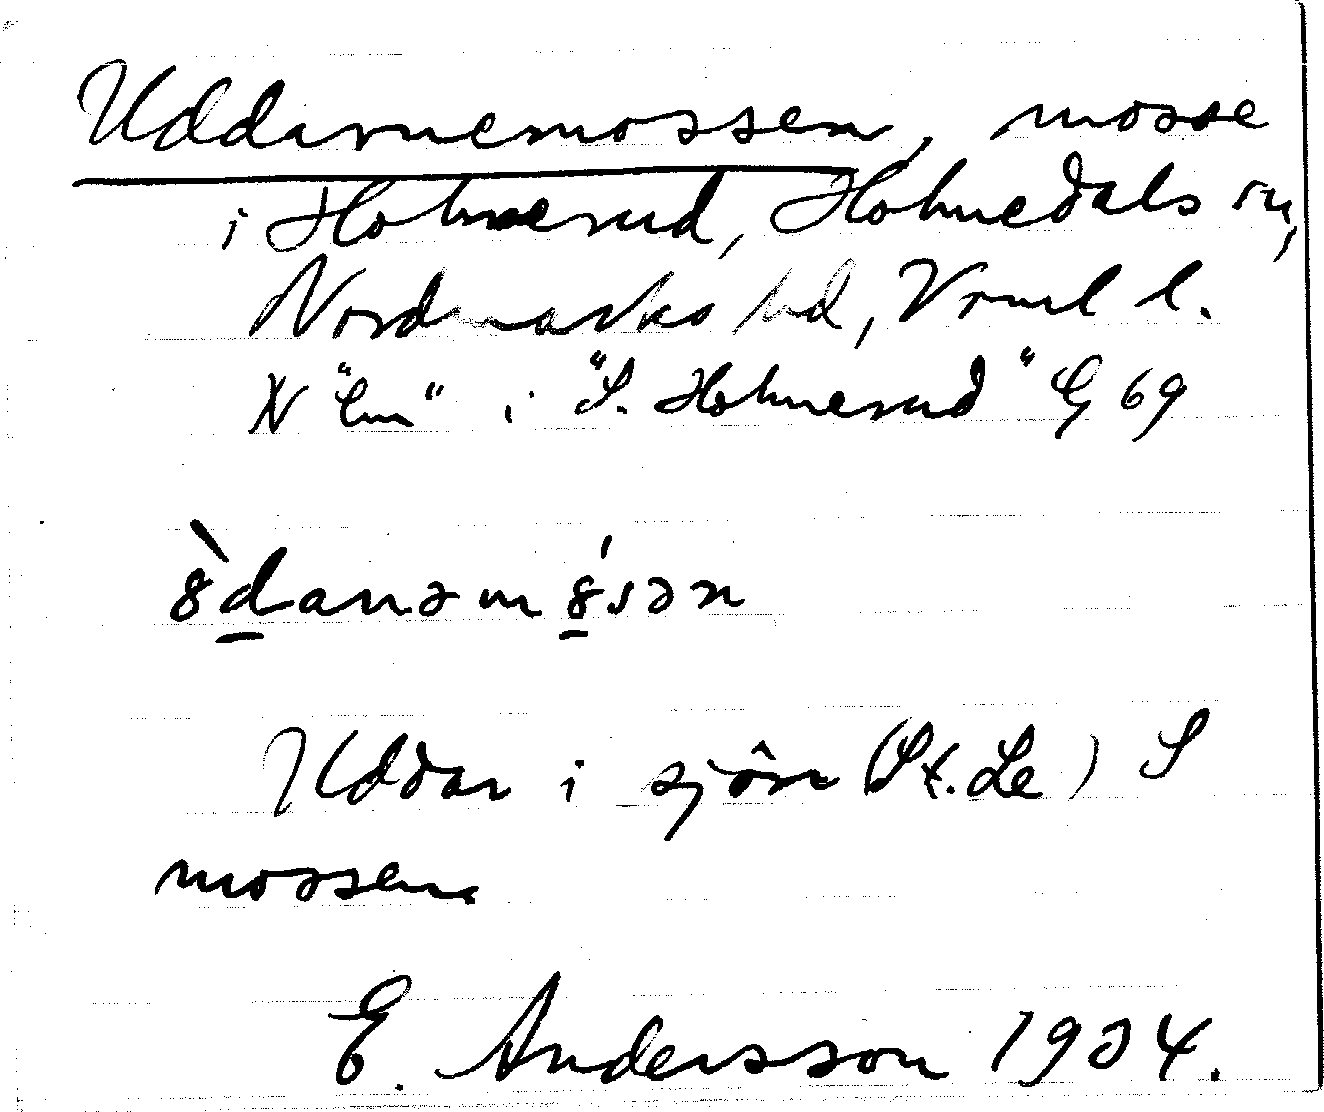 Uddarnemossen, mosse
i Holmerud, Holmedals sn,
Nordmarks hd, Vrml l.
N "lm" i "S. Holmerud" G 69
8̀danəm8́sən
Uddar i sjön (St. Le) S
mossen
E. Andersson 1934.